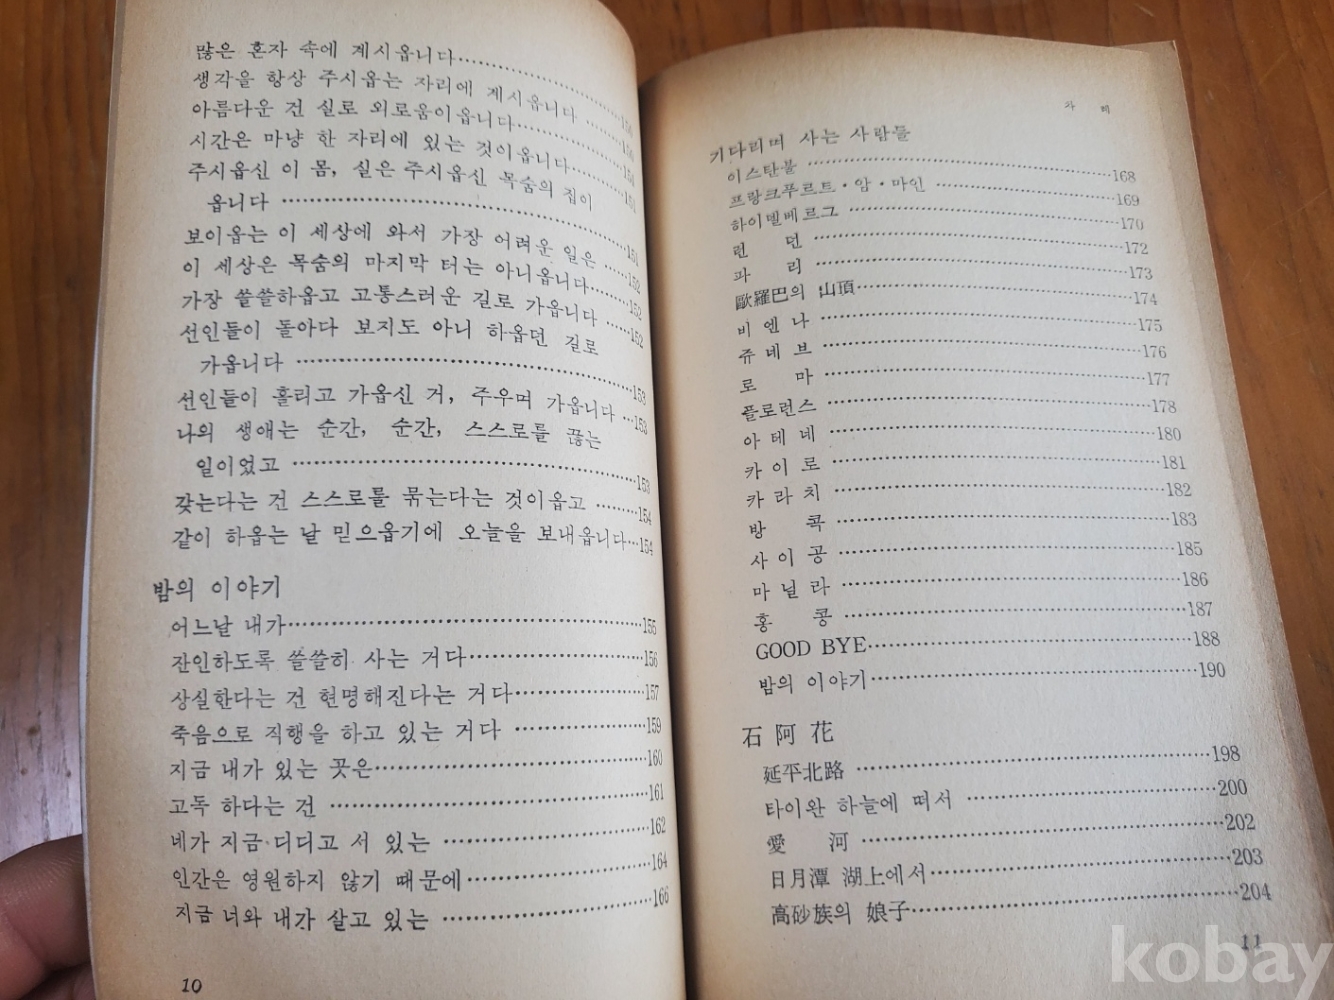 많은 혼자 속에 계시옵니다……150
생각을 항상 주시옵는 자리에 계시옵니다……150
아름다운 건 실로 외로움이옵니다……150
시간은 마냥 한 자리에 있는 것이옵니다……151
주시옵신 이 몸, 실은 주시옵신 목숨의 집이
옵니다……151
보이옵는 이 세상에 와서 가장 어려운 일은……152
이 세상은 목숨의 마지막 터는 아니옵니다……152
가장 쓸쓸하옵고 고통스러운 길로 가옵니다……152
선인들이 돌아다 보지도 아니 하옵던 길로
가옵니다……153
선인들이 흘리고 가옵신 거, 주우며 가옵니다…153
나의 생애는 순간, 순간, 스스로를 끊는
일이었고……153
갖는다는 건 스스로를 묶는다는 것이옵고……154
같이 하옵는 날 믿으옵기에 오늘을 보내옵니다…154
밤의 이야기
어느날 내가……155
잔인하도록 쓸쓸히 사는 거다……156
상실한다는 건 현명해진다는 거다……157
죽음으로 직행을 하고 있는 거다……159
지금 내가 있는 곳은……160
고독 하다는 건……161
네가 지금 디디고 서 있는……162
인간은 영원하지 않기 때문에……164
지금 너와 내가 살고 있는……166
10
차 례
기다리며 사는 사람들
이스탄불……168
프랑크푸르트·암·마인……169
하이델베르그……170
런 던……172
파 리……173
歐羅巴의 山頂……174
비 엔 나……175
쥬 네 브……176
로 마……177
플로런스……178
아 테 네……180
카 이 로……181
카 라 치……182
방 콕……183
사 이 공……185
마 닐 라……186
홍 콩……187
GOOD BYE……188
밤의 이야기……190
石 阿 花
延平北路……198
타이완 하늘에 떠서……200
愛 河……202
日月潭 湖上에서……203
高砂族의 娘子……204
11
kobay